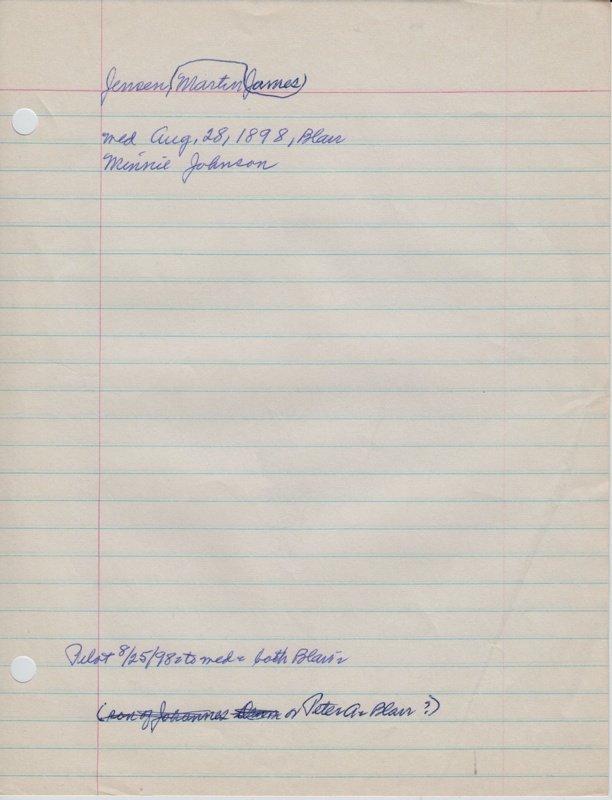 Jensen, (Martin James)
med Aug. 28, 1898, Blair
Minnie Johnson
Pilot 8/25/98 = to med = both Blair =
(son of Johannes or Peter A = Blair ?)